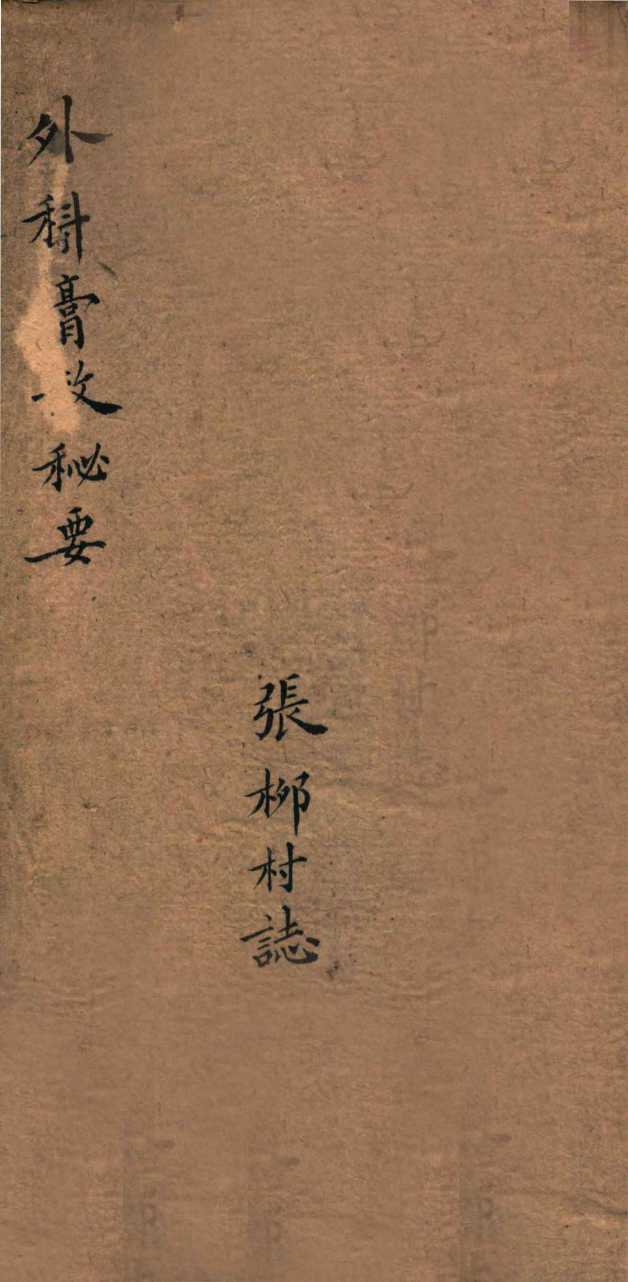 外科膏散秘要
張栁村誌